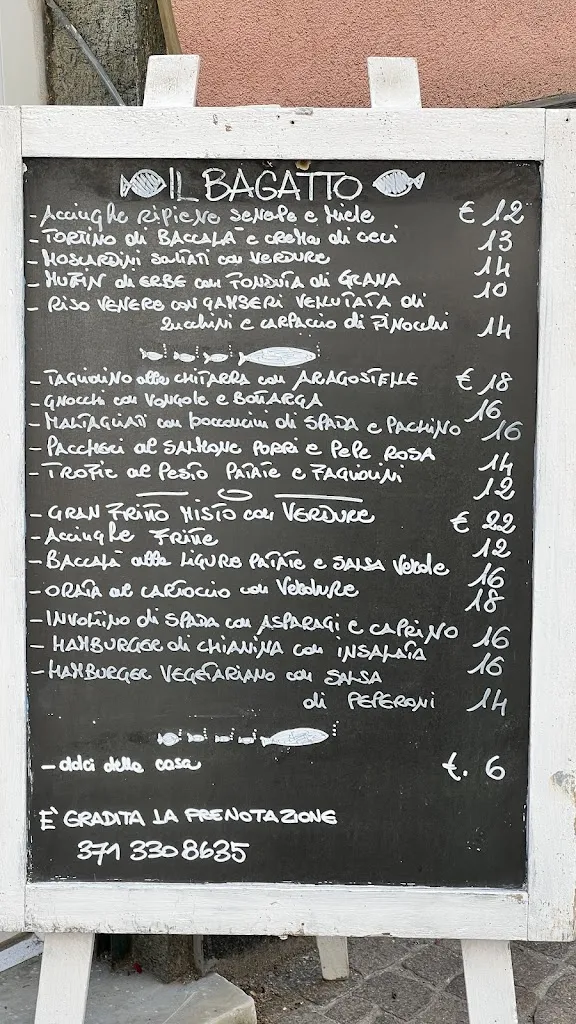 IL BAGATTO
- Acciughe RIPIENE SENAPE e Miele € 12
- TORTINO di BACCALÀ e CREMA di CECI 13
- MOSCARDINI SALTATI con VERDURE 14
- MUFFIN di ERBE con FONDUTA di GRANA 10
- RISO VENERE con GAMBERI VELLUTATA di
Zucchini e CARPACCIO di FINOCCHI 14
- TAGLIOLINO alla CHITARRA con ARAGOSTELLE € 18
- GNOCCHI con VONGOLE e BOTTARGA 16
- MALTAGLIATI con bocconcini di SPADA e PACHINO 16
- PACCHERI al SALMONE PORRI e PEPE ROSA 14
- TROFIE al PESTO PATATE e FAGIOLINI 12
- GRAN FRITTO MISTO con VERDURE € 22
- Acciughe FRITTE 12
- BACCALÀ alla LIGURE PATATE e SALSA Verde 16
- ORATA al CARTOCCIO con Verdure 18
- INVOLTINO di SPADA con ASPARAGI e CAPRINO 16
- HAMBURGER di CHIANINA con INSALATA 16
- HAMBURGER VEGETARIANO con SALSA
di PEPERONI 14
- dolci della casa €. 6
È GRADITA LA PRENOTAZIONE
371 330 8635